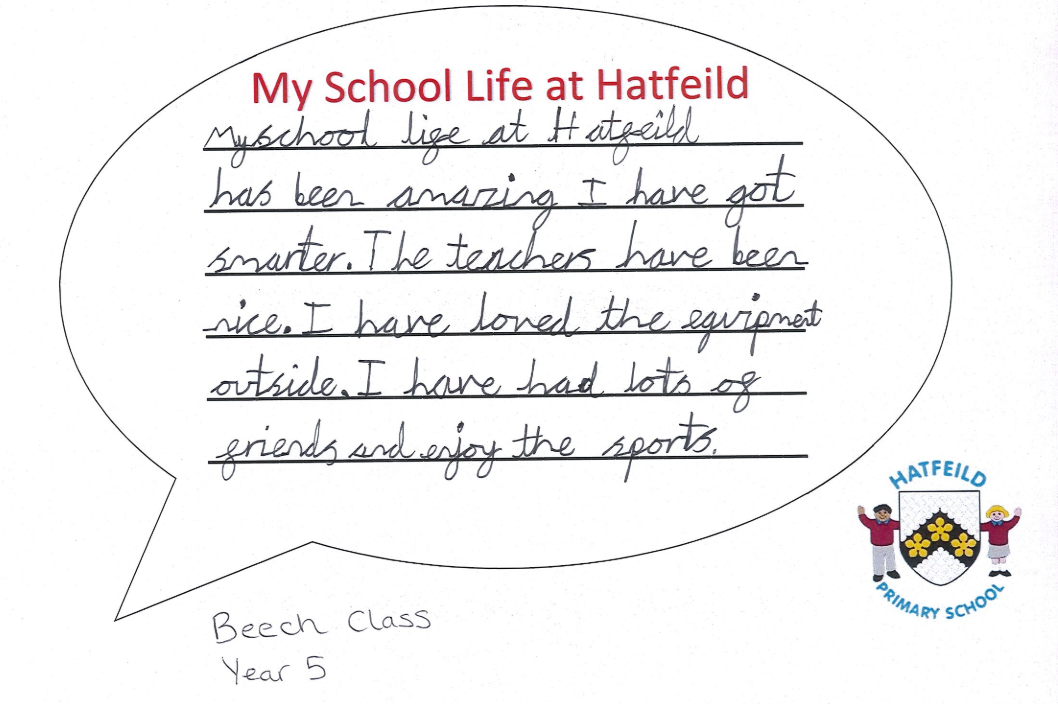 My School Life at Hatfeild
My school life at Hatfeild
has been amazing I have got
smarter. The teachers have been
nice. I have loved the equipment
outside. I have had lots of
friends and enjoy the sports.
HATFEILD
PRIMARY SCHOOL
Beech Class
Year 5